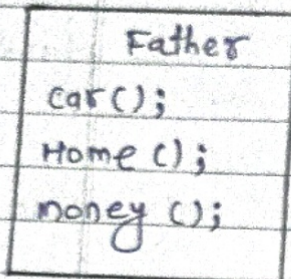 Father
car();
Home ();
money ();